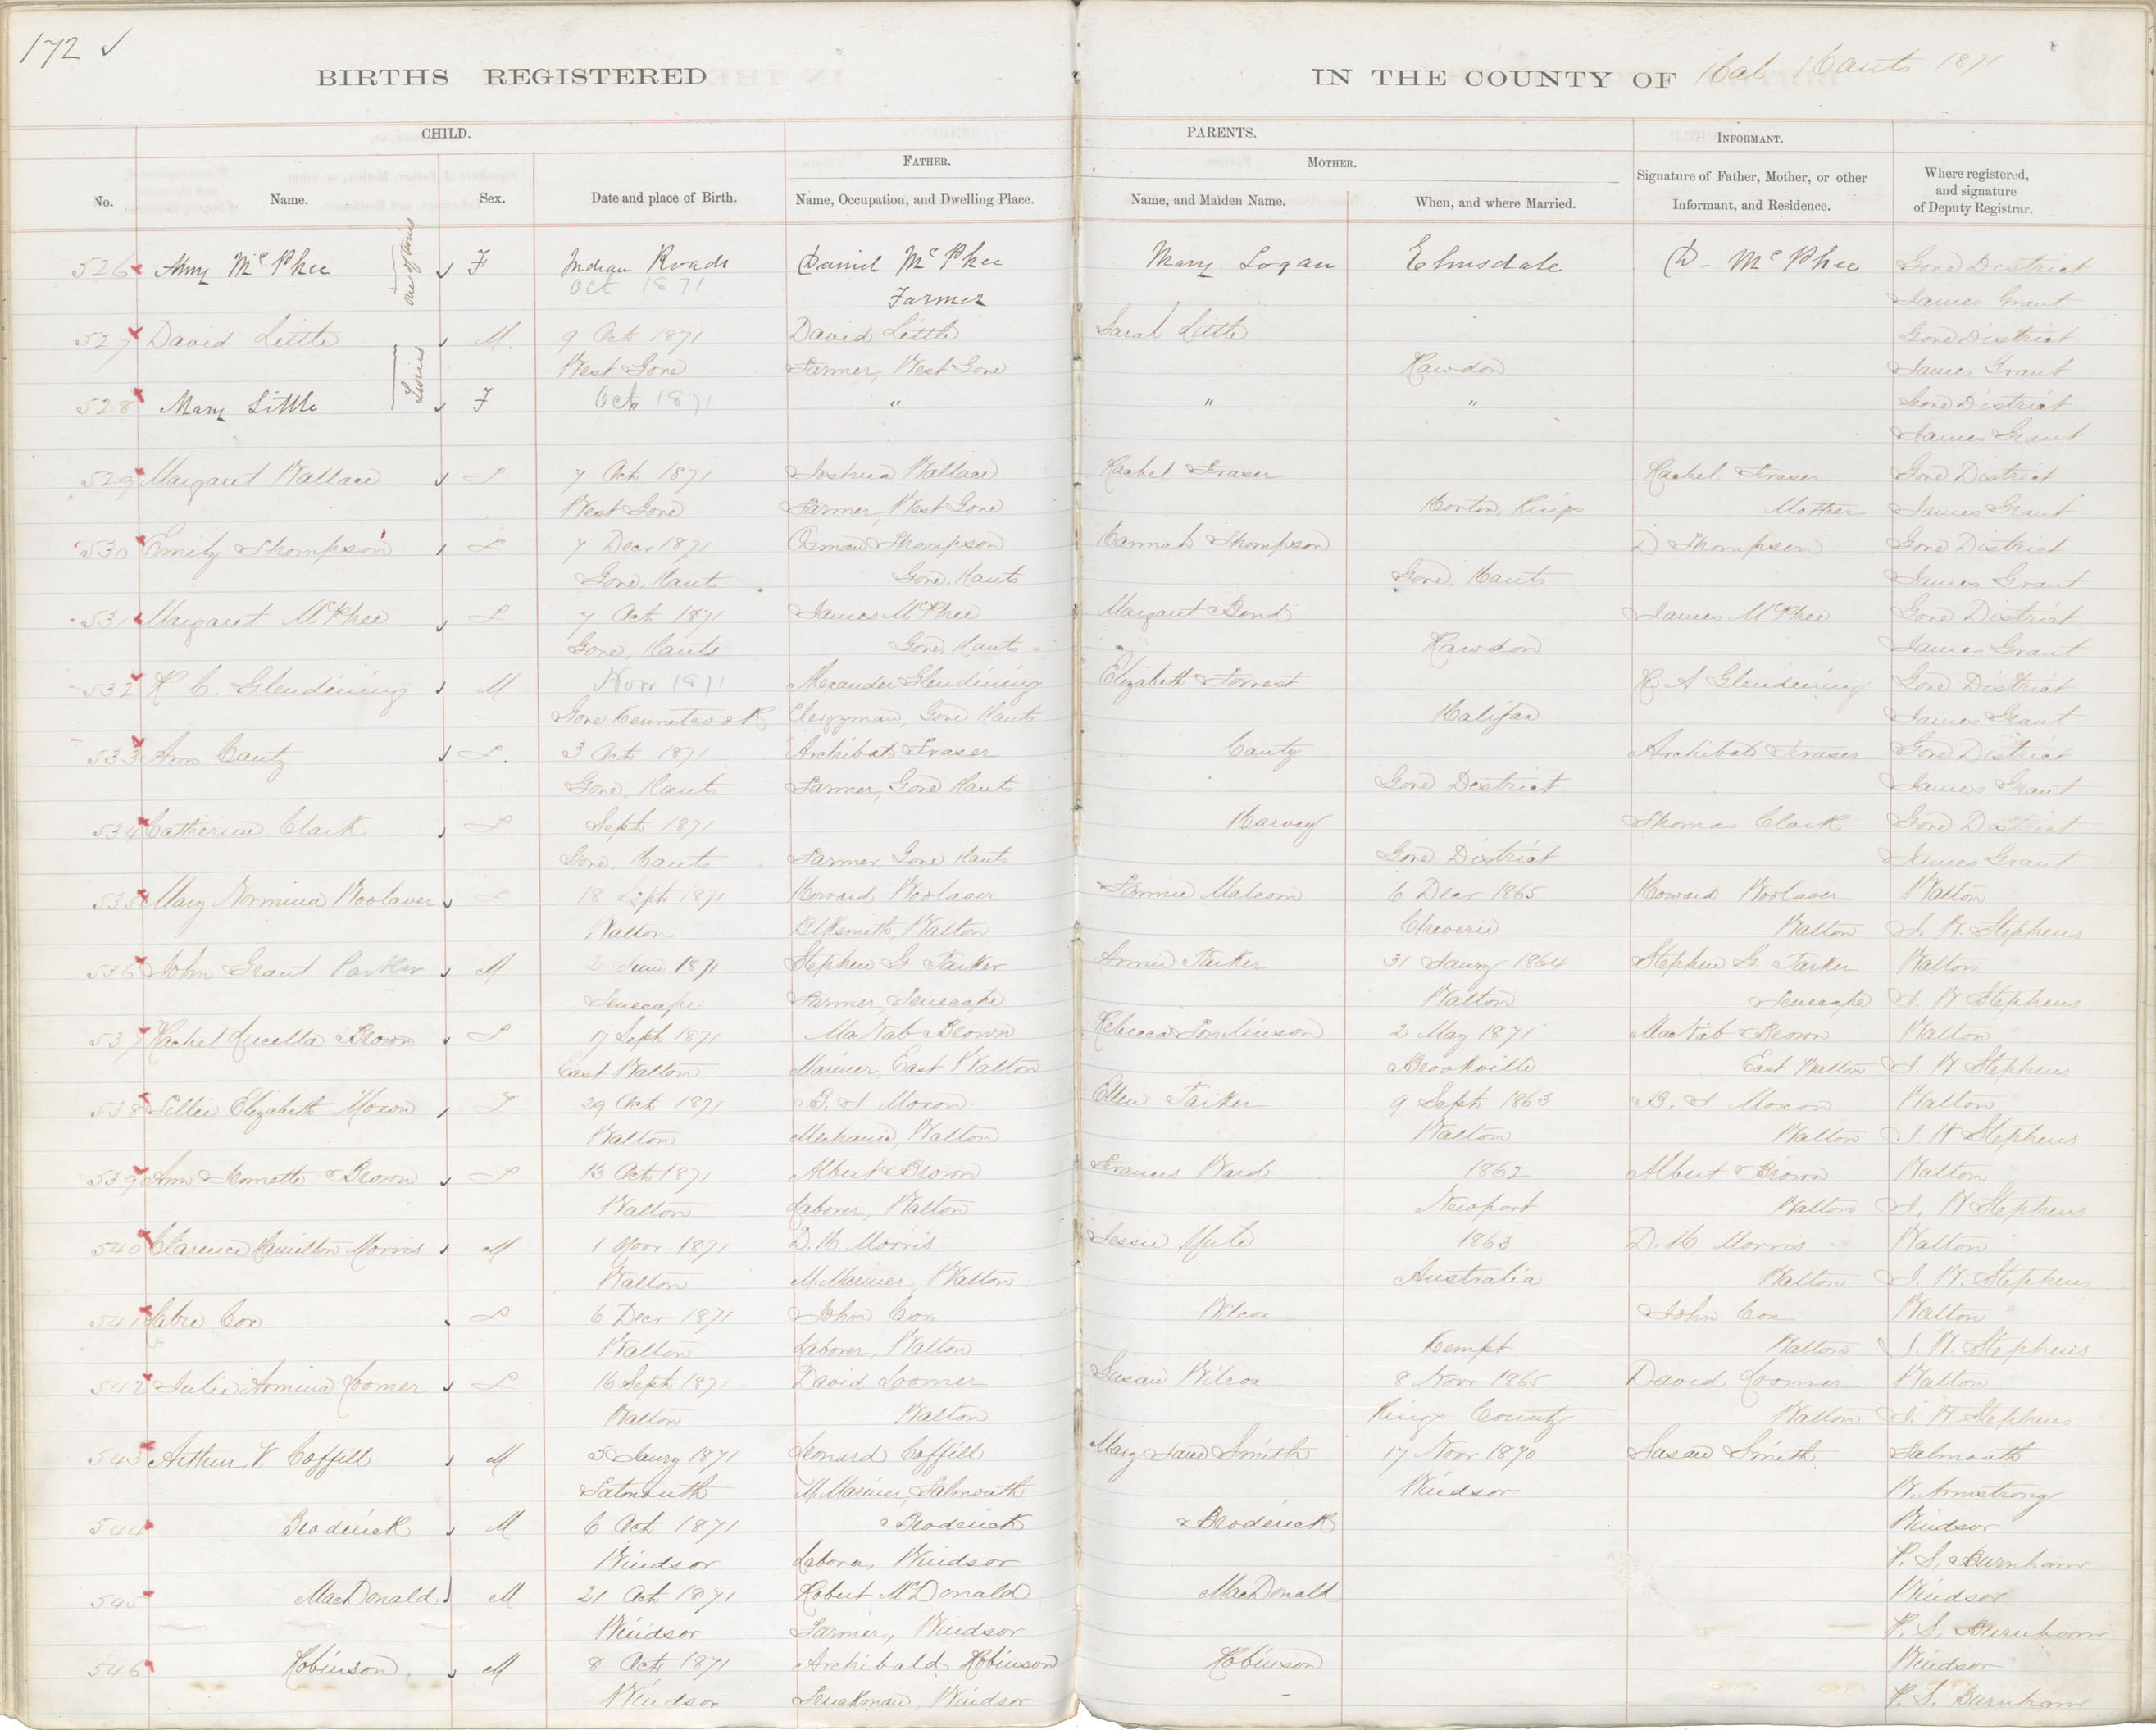 172 ✓
BIRTHS REGISTERED IN THE COUNTY OF Hants 1871
CHILD. PARENTS. INFORMANT.
FATHER. MOTHER.
No. Name. Sex. Date and place of Birth. Name, Occupation, and Dwelling Place. Name, and Maiden Name. When, and where Married. Signature of Father, Mother, or other Informant, and Residence. Where registered, and signature of Deputy Registrar.
526 Amy McPhee one of twins F Indian Roads Daniel McPhee Mary Logan Elmsdale D- McPhee Gore District
Oct 1871 Farmer James Grant
527 David Little M. 9 Oct 1871 David Little Sarah Little Gore District
Twins West Gore Farmer, West Gore Rawdon James Grant
528 Mary Little F Oct " 1871 " " " Gore District
James Grant
529 Margaret Wallace F 7 Oct 1871 Joshua Wallace Rachel Fraser Rachel Fraser Gore District
West Gore Farmer, West Gore Horton, Kings Mother James Grant
530 Emily Thompson F 7 Decr 1871 Osman Thompson Hannah Thompson D Thompson Gore District
Gore, Hants Gore, Hants Gore, Hants James Grant
531 Margaret McPhee F 7 Oct 1871 James McPhee Margaret Bond James McPhee Gore District
Gore, Hants Gore, Hants Rawdon James Grant
532 H C. Glendining M Novr 1871 Alexander Glendining Elizabeth Forrest Glendining Gore District
Gore Kennetcook Clergyman, Gore Hants Halifax James Grant
533 Ann Canty F. 3 Oct 1871 Archibald Fraser Canty Archibald Fraser Gore District
Gore, Hants Farmer, Gore Hants Gore District James Grant
534 Catherine Clark F Sept 1871 Harvey Thomas Clark Gore District
Gore, Hants Farmer, Gore Hants Gore District James Grant
535 Mary Normina Woolaver F 18 Sept 1871 Howard Woolaver Fannie Malcom 6 Decr 1865 Howard Woolaver Walton
Walton Blksmith, Walton Cheverie Walton J. W. Stephens
536 John Grant Parker M 2 June 1871 Stephen G Parker Annie Parker 31 Jany 1864 Stephen G Parker Walton
Tenecape Farmer, Tenecape Walton Tenecape J. W Stephens
537 Rachel Lucella Brown F 17 Sept 1871 MacNab Brown Rebecca Tomlinson 2 May 1871 MacNab Brown Walton
East Walton Mariner, East Walton Brookville East Walton J. W Stephens
538 Lillie Elizabeth Moxon F 29 Oct 1871 B. J Moxon Ellen Parker 9 Sept 1863 B. J Moxon Walton
Walton Mechanic, Walton Walton Walton J. W Stephens
539 Ann Brown F 13 Oct 1871 Albert Brown Frances Ward 1862 Albert Brown Walton
Walton Laborer, Walton Newport Walton J. W Stephens
540 Clarence Hamilton Morris M 1 Novr 1871 D. H Morris Jessie 1863 D. H Morris Walton
Walton M. Mariner, Walton Australia Walton J. W. Stephens
541 Cox F 6 Decr 1871 John Cox Wilcox John Cox Walton
Walton Laborer, Walton Kempt Walton J. W. Stephens
542 Julia Armina Loomer F 16 Sept 1871 David Loomer Susan Wilcox 8 Novr 1865 David Loomer Walton
Walton Walton Kings County Walton J. W. Stephens
543 Arthur V Coffill M 5 Jany 1871 Leonard Coffill Mary Jane Smith 17 Novr 1870 Susan Smith Falmouth
Falmouth M. Mariner, Falmouth Windsor W. Armstrong
544 Broderick M 6 Oct 1871 Broderick Broderick Windsor
Windsor Laborer, Windsor P. S. Burnham
545 MacDonald M 21 Oct 1871 Robert McDonald MacDonald Windsor
Windsor Farmer, Windsor P. S. Burnham
546 Robinson M 8 Oct 1871 Archibald Robinson Robinson Windsor
Windsor Truckman, Windsor - P. S. Burnham